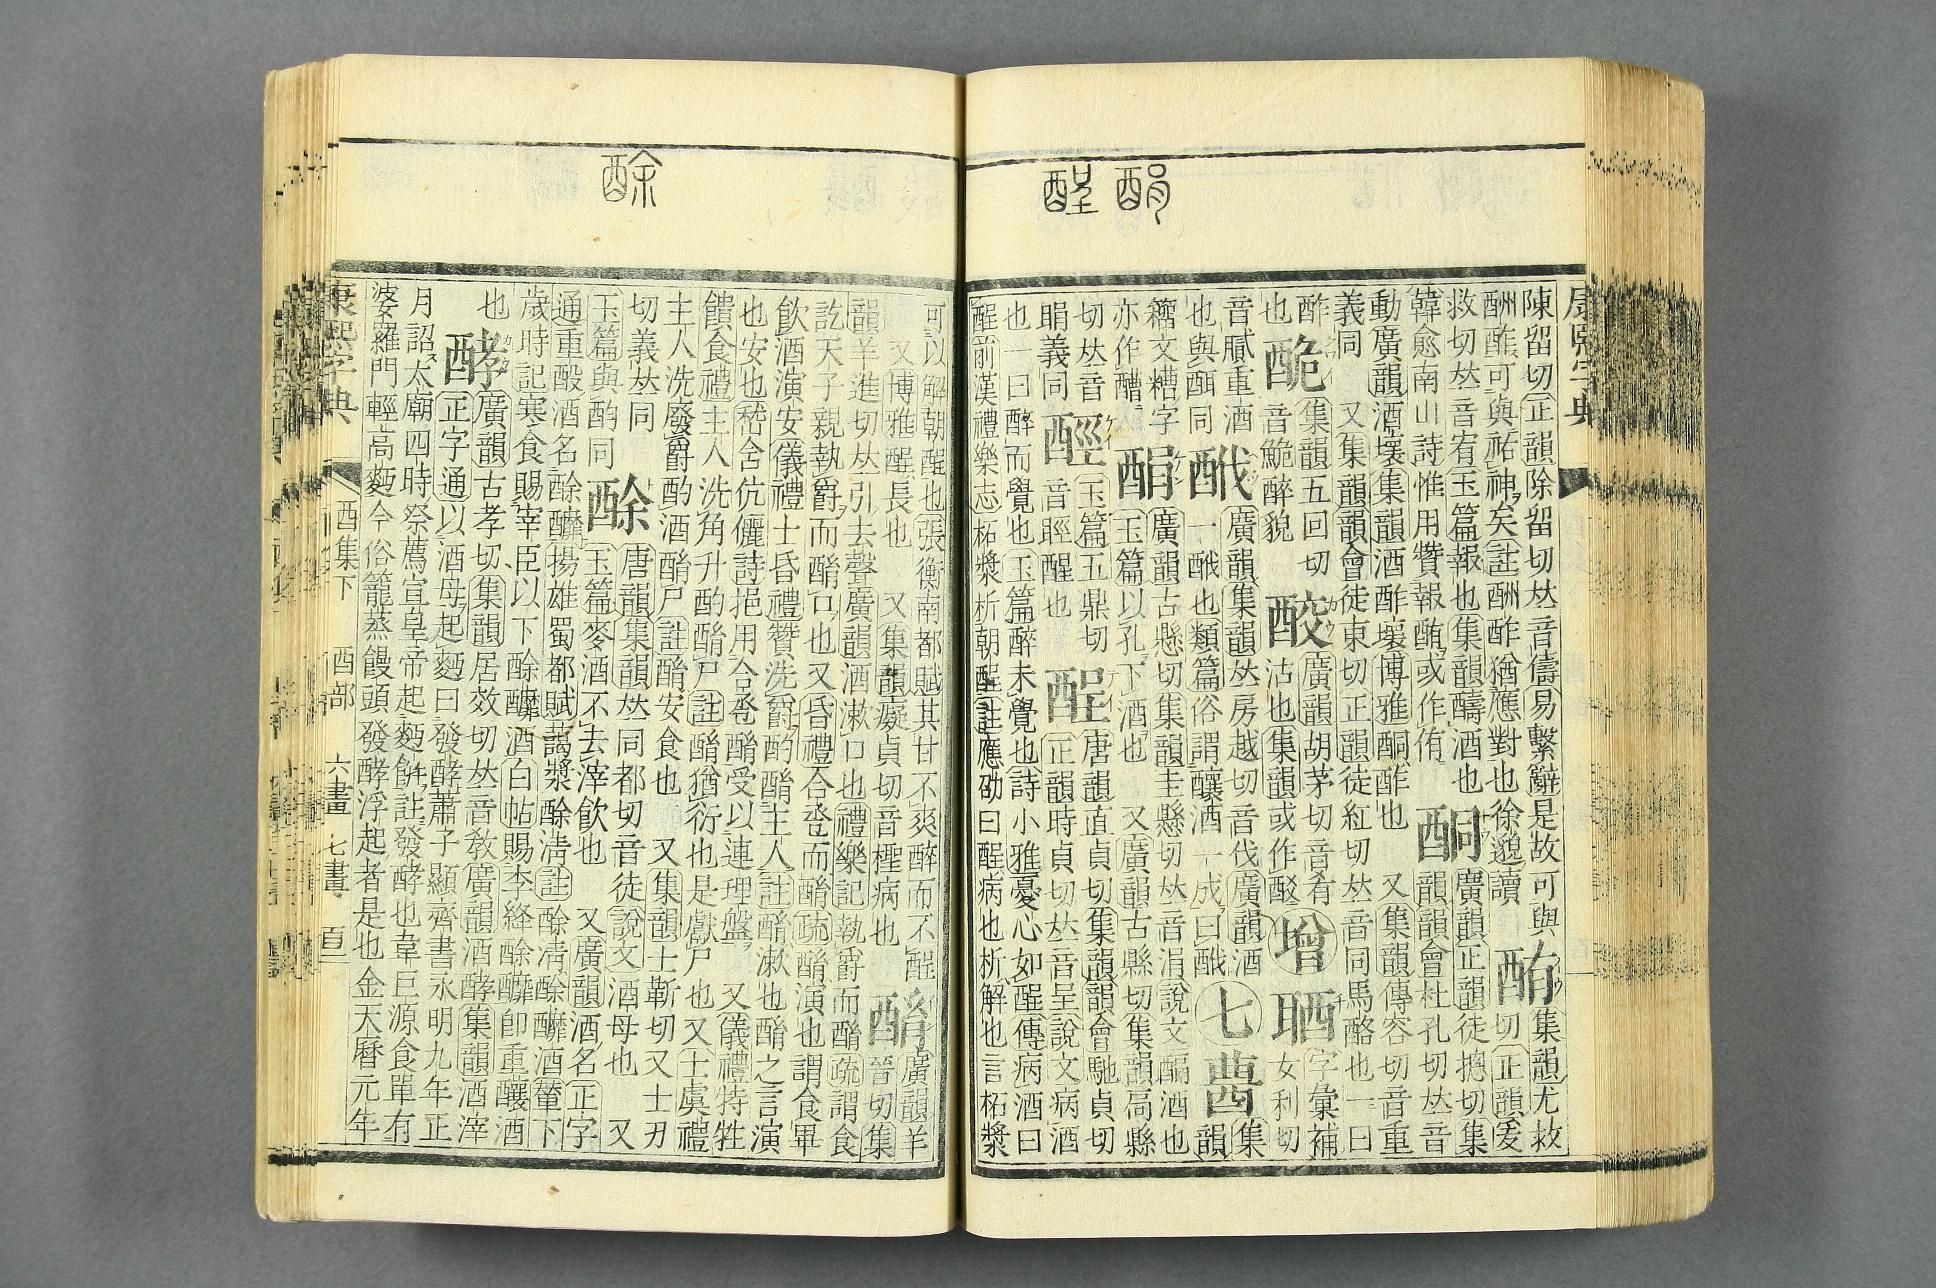 康熙字典
酳
醒
陳留切正韻除留切𠀤音儔易繫辭是故可與酭集韻尤救
酬酢可與祐神矣註酬酢猶應對也徐邈讀切正韻爰
救切𠀤音宥玉篇報也集韻醻酒也酮廣韻正韻徒摠切集
韓愈南山詩惟用贊報酭或作侑韻韻會杜孔切𠀤音
動廣韻酒壞集韻酒酢壞博雅酮酢也又集韻傳容切音重
義同又集韻韻會徒東切正韻徒紅切𠀤音同馬酪也一曰
酢集韻五回切廣韻胡茅切音肴增字彙補
也音鮠醉貌沽也集韻或作女利切
音膩重酒廣韻集韻𠀤房越切音伐廣韻酒七集
也與酮同一酦也類篇俗謂釀酒一成曰韻
籀文糟字廣韻古縣切集韻圭縣切𠀤音涓說文酳酒也
亦作醩玉篇以孔下酒也又廣韻古縣切集韻高縣
切𠀤音玉篇五鼎切酲唐韻直貞切集韻韻會馳貞切
睊義同音脛醒也正韻時貞切𠀤音呈說文病酒
也一曰醉而覺也玉篇醉未覺也詩小雅憂心如酲傳病酒曰
酲前漢禮樂志柘漿析朝酲註應劭曰酲病也析解也言柘漿
酴
可以解朝酲也張衡南都賦其甘不爽醉而不酲酳廣韻羊
又博雅酲長也又集韻癡貞切音檉病也晉切集
韻羊進切𠀤引去聲廣韻酒漱口也禮樂記執爵而酳疏謂食
訖天子親執爵而酳口也又昏禮合卺而酳疏酳演也謂食畢
飲酒演安儀禮士昏禮贊洗爵酌酳主人註酳漱也酳之言演
也安也嵇含伉儷詩挹用合卺酳受以連理盤又儀禮特牲
饋食禮主人洗角升酌酳尸註酳猶衍也是獻尸也又士虞禮
主人洗廢爵酌酒酳尸註酳安食也又集韻士靳切又士刃
切義𠀤同酴唐韻集韻𠀤同都切音徒說文酒母也又
玉篇與酌同玉篇麥酒不去滓飲也又廣韻酒名正字
通重酘酒名酴醿揚雄蜀都賦蒟漿酴淸註酴淸酴醿酒葷下
歲時記寒食賜宰臣以下酴醿酒白帖賜李絳酴醿卽重釀酒
也酵廣韻古孝切集韻居效切𠀤音敎廣韻酒酵集韻酒滓
正字通以酒母起麪曰發酵蕭子顯齊書永明九年正
月詔太廟四時祭薦宣皇帝起麪餠註發酵也韋巨源食單有
婆羅門輕高麪今俗籠蒸饅頭發酵浮起者是也金天曆元年
康熙字典 酉集下 酉部 六畫 七畫